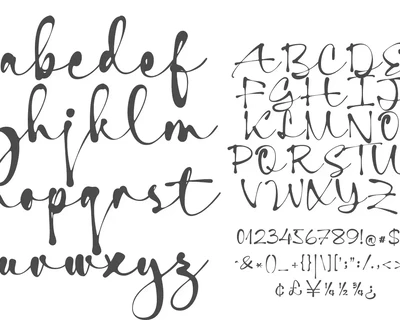 abcdef
ghijklm
nopqrst
uvwxyz
ABCDE
FGHIJ
KLMNO
PQRSTU
VWXYZ
0123456789!@#$
-&*()_+{}|\[;":/.,<>
¢£¥¼½¾¿